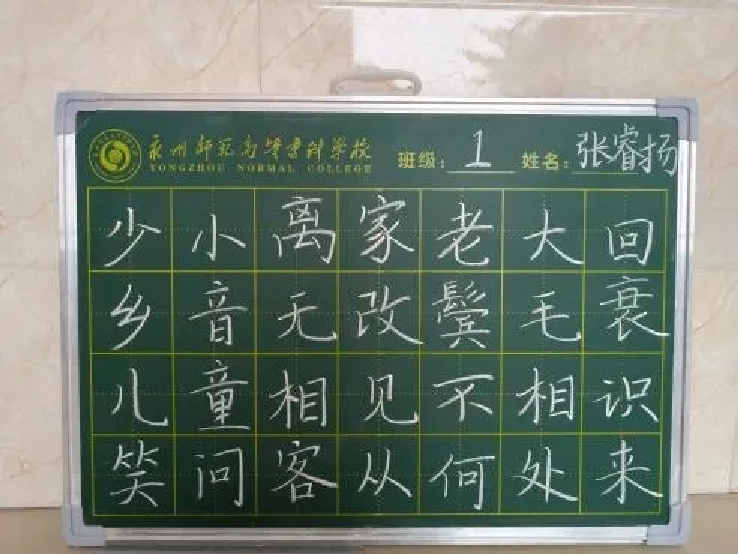 永州师范高等专科学校
YONGZHOU NORMAL COLLEGE
班级: 1 姓名: 张睿扬
少小离家老大回
乡音无改鬓毛衰
儿童相见不相识
笑问客从何处来